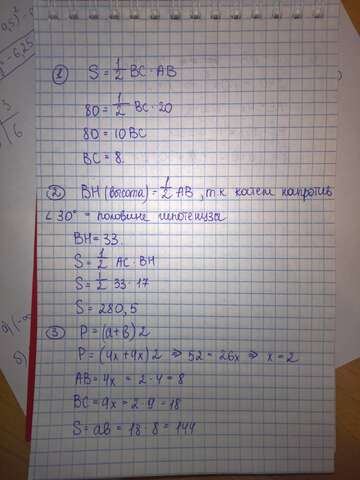 9,5)²
² - 6,25
3
6
1 S = 1/2 BC · AB
80 = 1/2 BC · 20
80 = 10 BC
BC = 8.
2 BH (высота) = 1/2 AB, т.к катет напротив
∠ 30° = половине гипотенузы
BH = 33.
S = 1/2 AC · BH
S = 1/2 33 · 17
S = 280,5
3 P = (a+b) 2
P = (4x+9x) 2 ⇒ 52 = 26x ⇒ x = 2
AB = 4x = 2 · 4 = 8
BC = 9x = 2 · 9 = 18
S = ab = 18 · 8 = 144
а) (-∞
б)